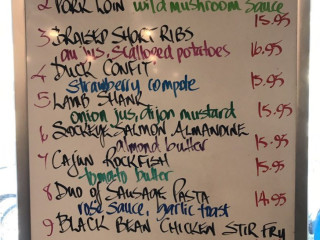 2 PORK LOIN wild mushroom sauce
15.95
3 BRAISED SHORT RIBS
au jus, scalloped potatoes 16.95
4 DUCK CONFIT
strawberry compote 15.95
5 LAMB SHANK
onion jus, dijon mustard 15.95
6 SOCKEYE SALMON ALMANDINE
almond butter 15.95
7 CAJUN ROCKFISH
tomato butter 15.95
8 DUO OF SAUSAGE PASTA
rosé sauce, garlic toast 14.95
9 BLACK BEAN CHICKEN STIR FRY